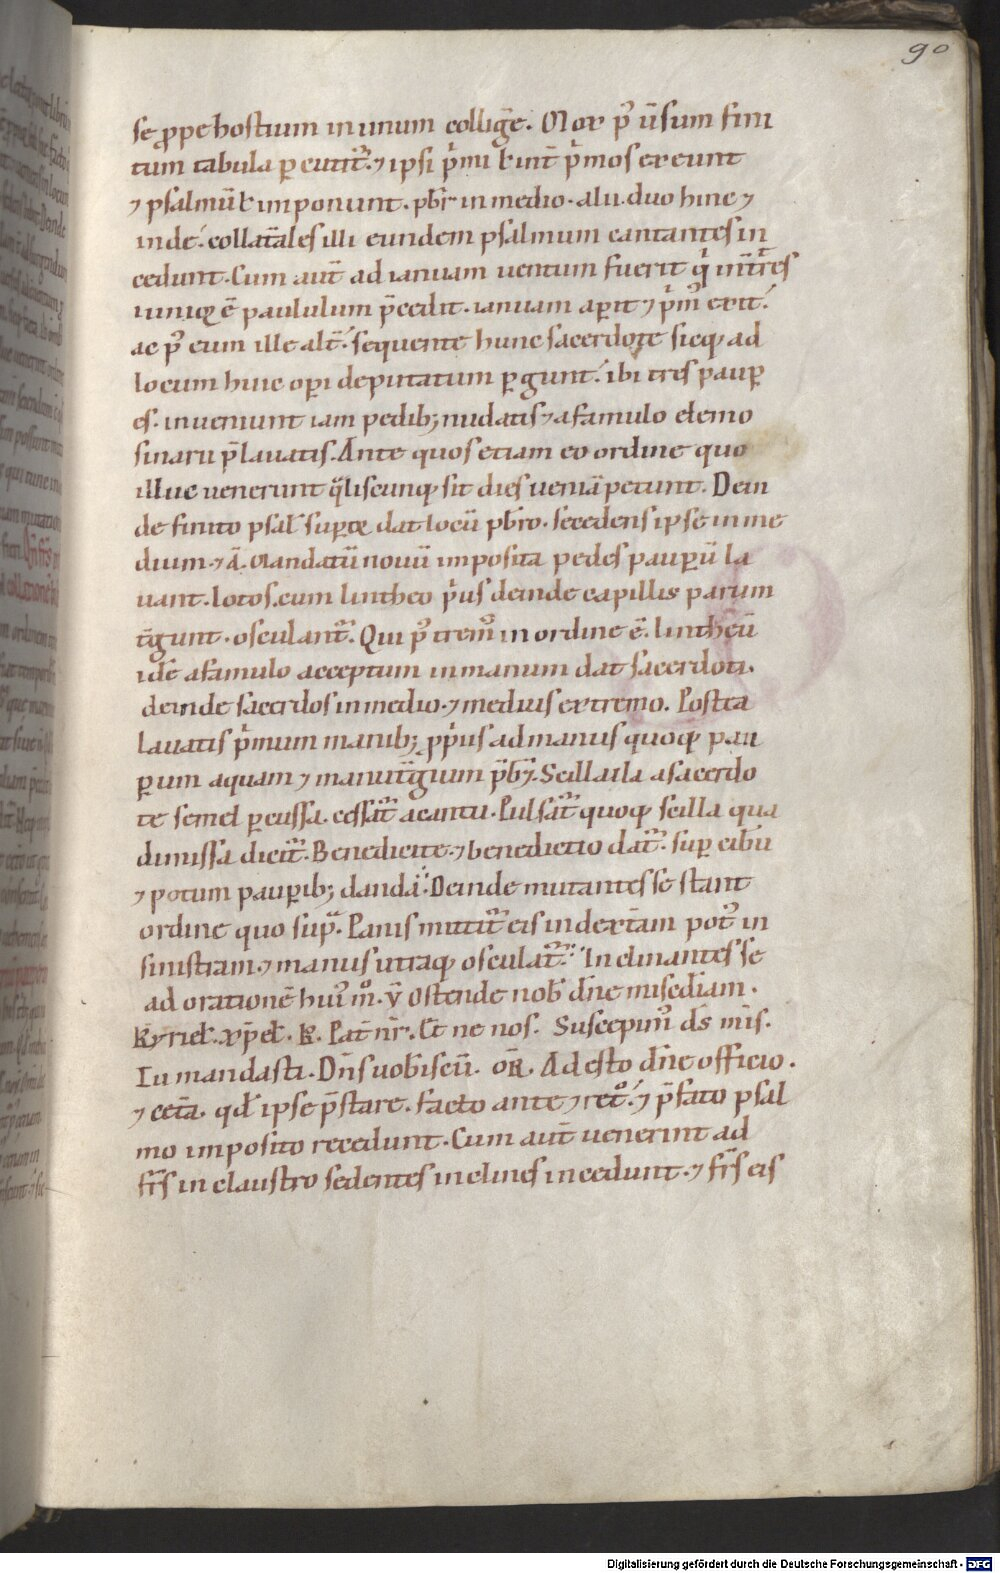 90
se ꝓpe hostium in unum collig̅e. Mox p᷒ ūsum fini
tum tabula ꝑcutit᷑. ⁊ ipsi p̍mi ł int̄ p̍mos exeunt
⁊ psalmū ł imponunt. pbr̄ in medio. alii duo hinc ⁊
inde. collat̄ales illi eundem psalmum cantantes in
cedunt. Cum aut̄ ad ianuam uentum fuerit q̍ int̄ tres
iuniꝰ ē paululum p̄cedit. ianuam aꝑit ⁊ p̍m᷒ exit.
ac p᷒ eum ille alt̄. sequente hunc sacerdote sicq; ad
locum huic oꝑi deputatum ꝑgunt. ibi tres pauꝑ
es. inueniunt iam pedib; nudatis ⁊ a famulo elemo
sinarii p̄lauatis. Ante quos etiam eo ordine quo
illuc uenerunt q̄liscunq; sit dies ueniā petunt. Dein
de finito psal̄ suꝑi᷒ dat locū pbr̄o. secedens ipse in me
dium. ⁊ ā. Mandatū nouū imposita pedes pauꝑū la
uant. lotos. cum lintheo p̍us deinde capillis parum
t̄gunt. osculant᷑. Qui p᷒ trem᷒ in ordine ē. lintheū
idē a famulo acceptum in manum dat sacerdoti.
deinde sacerdos in medio. ⁊ medius extremo. Postea
lauatis p̍mum manib; ꝓp̍us ad manus quoq; pau
ꝑum aquam ⁊ manut̄gium p̄b;. Scilla illa a sacerdo
te semel ꝑcussa. cessat᷑ a cantu. Pulsat᷑ quoq; scilla qua
dimissa dicit᷑. Benedicite. ⁊ benedictio dat᷑. suꝑ cibū
⁊ potum pauꝑib; dandā. Deinde mutantes se stant
ordine quo sup̄. Panis mittit᷑ eis in dext̄am pot᷒ in
sinistram. ⁊ manus utraq; osculat᷑. Inclinantes se
ad orationē hui᷒ mͦ. v̄ Ostende nob̄ dn̄e mis̄ediam.
Kyriel̄. xp̄el̄. K. Pat̄ nr̄. Et ne nos. Suscepim᷒ ds̄ mis̄.
Tu mandasti. Dn̄s uobiscū. or̄. Adesto dn̄e officio.
⁊ cet̄a. qd̄ ipse p̄stare. facto ante ⁊ retͦ. ⁊ p̄fato psal
mo imposito recedunt. Cum aut̄ uenerint ad
fr̄s in claustro sedentes inclines incedunt. ⁊ fr̄s eis
Digitalisierung gefördert durch die Deutsche Forschungsgemeinschaft - DFG